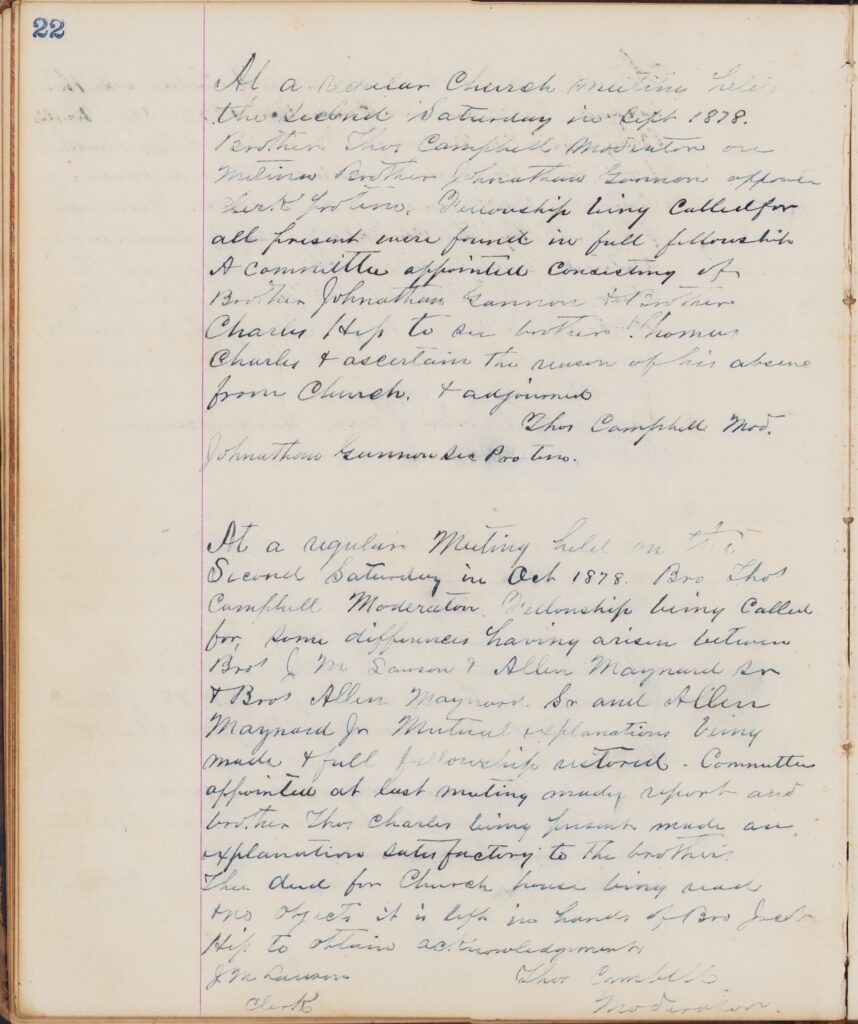 22
At a regular Church meeting held
the second Saturday in Sept 1878.
Brother Thos Campbell Moderator on
Motion Brother Johnathan Gannon
Clerk protem. Fellowship being Called for
all present were found in full fellowship
A Committee appointed Consisting of
Brother Johnathan Gannon & Brother
Charles Hip to see brother Thomas
Charles & ascertain the reason of his absence
from Church. & adjourned
Thos Campbell Mod.
Johnathan Gannon Sec Protem.
At a regular Meeting held on the
Second Saturday in Oct 1878. Bro Thos
Campbell Moderator. Fellowship being Called
for, some differences having arisen between
Bros J M Lawson & Allen Maynard Sr
& Bros Allen Maynard Sr and Allen
Maynard Jr Mutual explanations being
made & full fellowship restored. Committee
appointed at last meeting made report and
brother Thos Charles being present made an
explanation satisfactory to the
The deed for Church house being read
& no objects it is left in hands of Bro Jacob
Hip to obtain acknowledgments
J M Lawson
Thos Cambell
Clerk
Moderator.